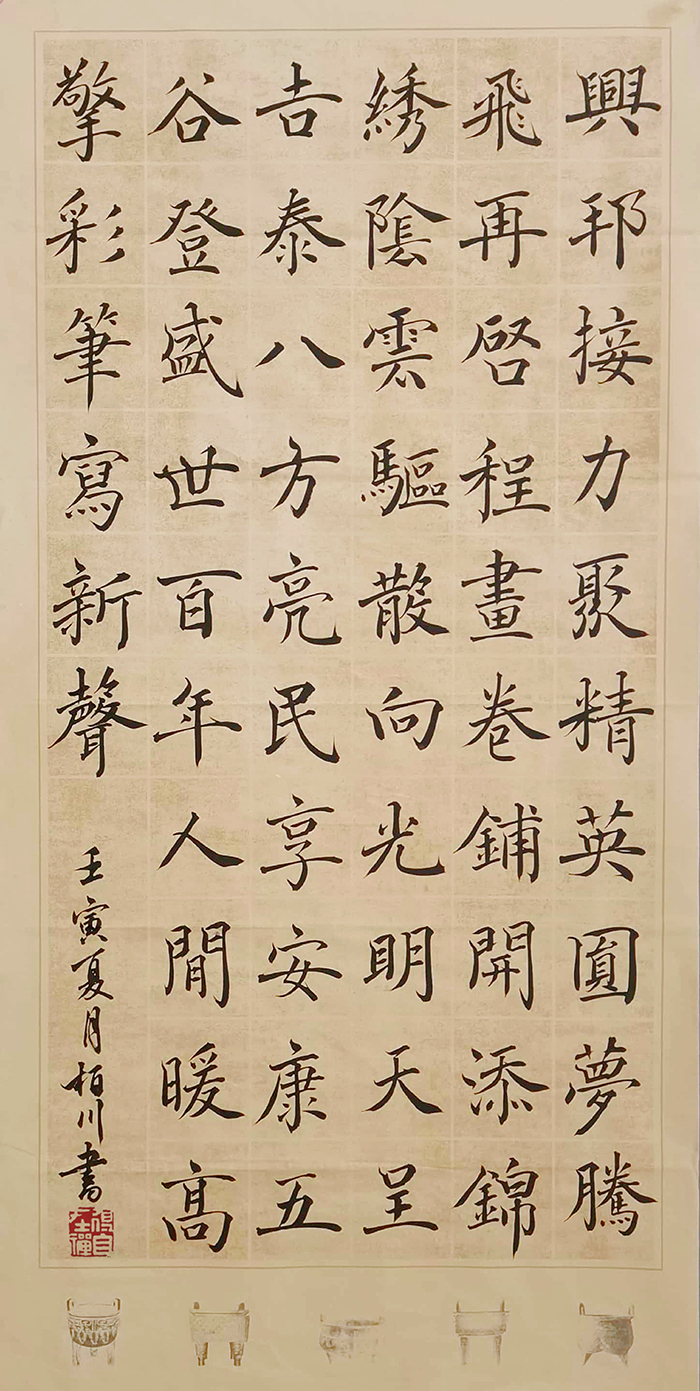 興邦接力聚精英圓夢騰
飛再啓程畫卷鋪開添錦
綉陰雲驅散向光明天呈
吉泰八方亮民享安康五
谷登盛世百年人間暖高
擎彩筆寫新聲
壬寅夏月栢川書